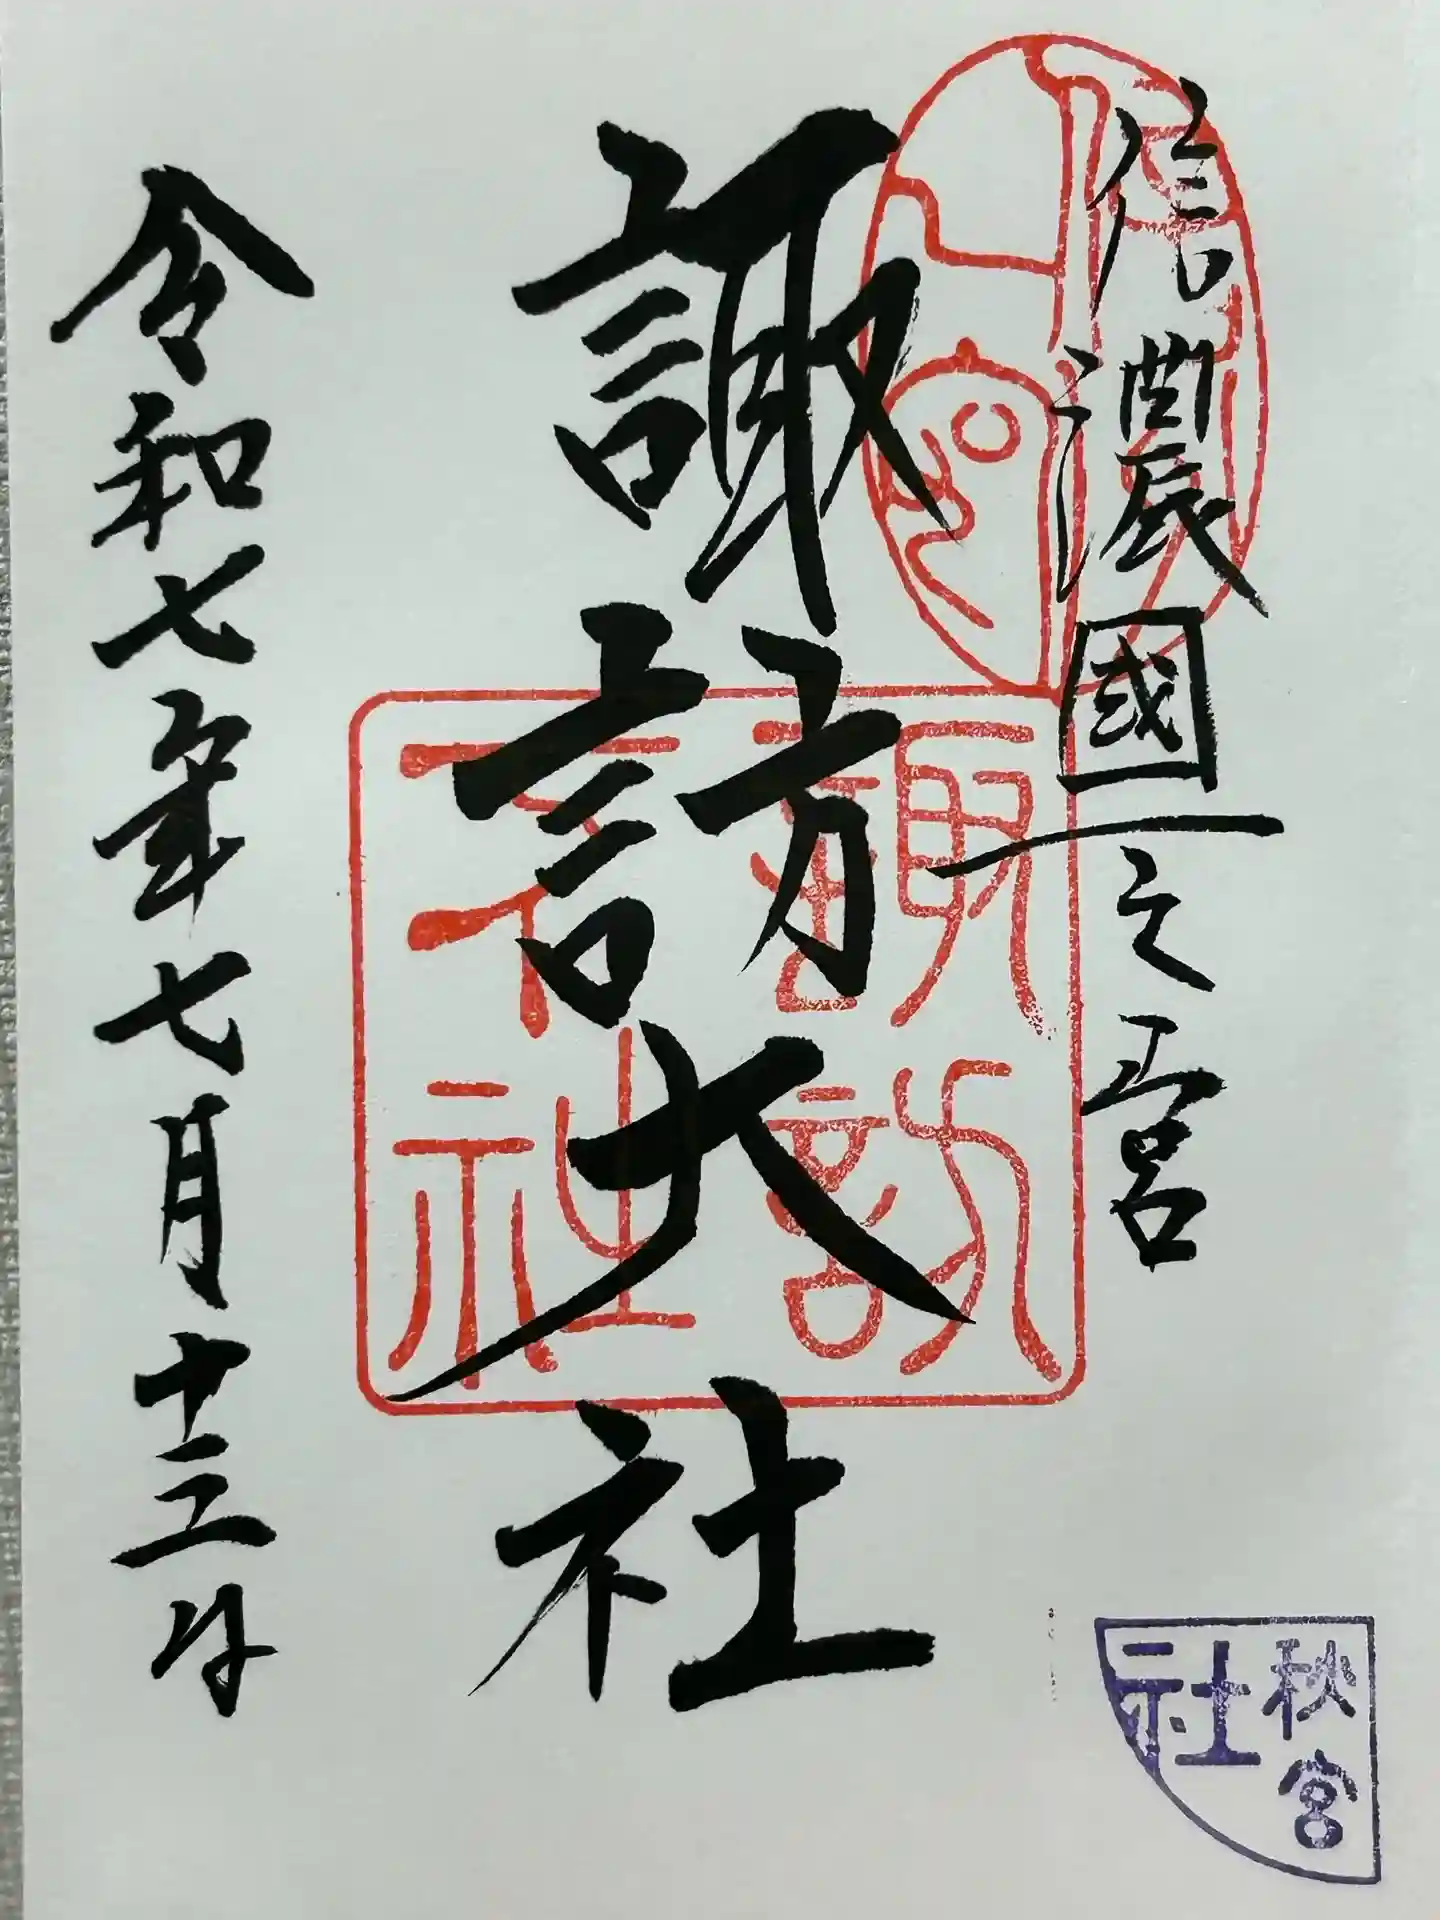 信濃國一之宮
諏訪大社
令和七年七月十三日
諏訪
下社
秋宮
社